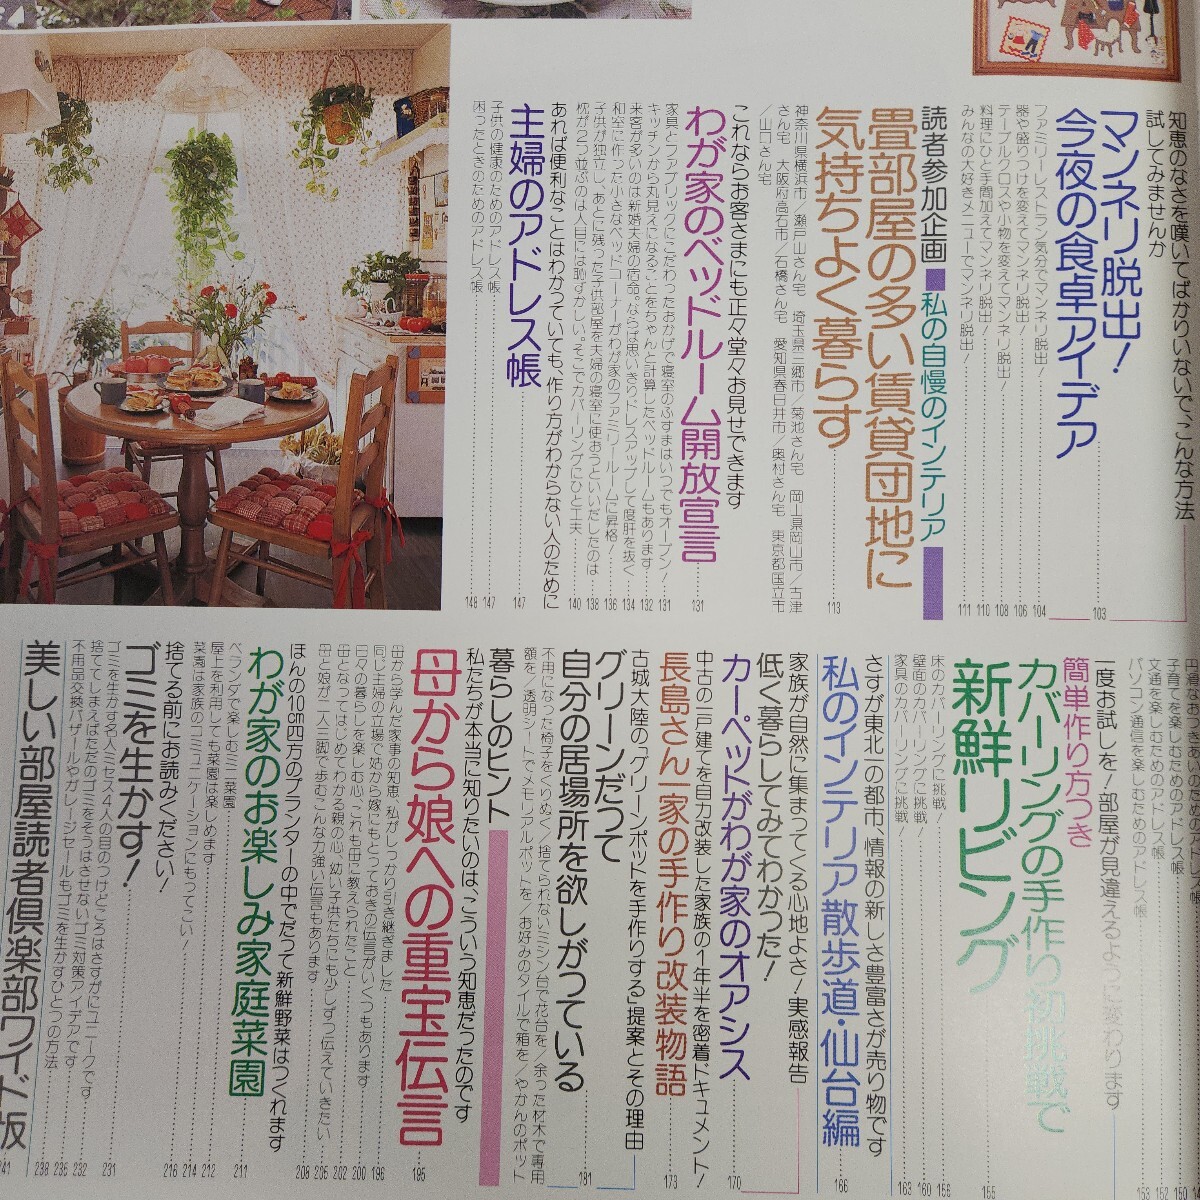 知恵のなさを嘆いてばかりいないで、こんな方法
試してみませんか
マンネリ脱出!
今夜の食卓アイデア
103
ファミリーレストラン気分でマンネリ脱出!
104
器や盛りつけを変えてマンネリ脱出!
106
テーブルクロスや小物を変えてマンネリ脱出!
108
料理にひと手間加えてマンネリ脱出!
110
みんなの大好きメニューでマンネリ脱出!
111
読者参加企画■私の自慢のインテリア
畳部屋の多い賃貸団地に
気持ちよく暮らす
113
神奈川県横浜市/瀬戸山さん宅 埼玉県三郷市/菊池さん宅 岡山県岡山市/古津
さん宅 大阪府高石市/石橋さん宅 愛知県春日井市/奥村さん宅 東京都国立市
/山口さん宅
これならお客さまにも正々堂々お見せできます
わが家のベッドルーム開放宣言
131
家具とファブリックにこだわったおかげで寝室のふすまはいつでもオープン!
131
キッチンから丸見えになることをちゃんと計算したベッドルームもあります
132
来客が多いのは新婚夫婦の宿命。ならば思いきりドレスアップして度肝を抜く
134
和室に作った小さなベッドコーナーがわが家のファミリールームに昇格!
136
子供が独立し、あとに残った子供部屋を夫婦の寝室に使おうといいだしたのは
138
枕が2つ並ぶのは人目には恥ずかしい。そこでカバーリングにひと工夫
140
あれば便利なことはわかっていても、作り方がわからない人のために
主婦のアドレス帳
147
子供の健康のためのアドレス帳
147
困ったときのためのアドレス帳
148
子育てを楽しむためのアドレス帳
文通を楽しむためのアドレス帳
152
パソコン通信を楽しむためのアドレス帳
153
一度お試しを!部屋が見違えるように変わります
簡単作り方つき
カバーリングの手作り初挑戦で
新鮮リビング
155
床のカバーリングに挑戦!
156
壁面のカバーリングに挑戦!
160
家具のカバーリングに挑戦!
163
さすが東北一の都市、情報の新しさ豊富さが売り物です
私のインテリア散歩道・仙台編
166
家族が自然に集まってくる心地よさ!実感報告
低く暮らしてみてわかった!
カーペットがわが家のオアシス
170
中古の一戸建てを自力改装した家族の1年半を密着ドキュメント!
長島さん一家の手作り改装物語
173
古城大陸の「グリーンポットを手作りする」提案とその理由
グリーンだって
自分の居場所を欲しがっている
181
不用になった椅子をくりぬく/捨てられないミシン台で花台を/余った材木で専用
額を/透明シートでメモリアルポットを/お好みのタイルで箱を/やかんのポット
暮らしのヒント
私たちが本当に知りたいのは、こういう知恵だったのです
母から娘への重宝伝言
195
母から学んだ家事の知恵、私がしっかり引き継ぎました
196
同じ主婦の立場で姑から嫁にもとっておきの伝言がいくつもあります
200
日々の暮らしを楽しむ心、これも母に教えられたこと
202
母となってはじめてわかる親の心、幼い子供たちにも少しずつ伝えていきたい
205
母と娘が二人三脚で歩むこんな力強い伝言もあります
208
ほんの10cm四方のプランターの中でだって新鮮野菜はつくれます
わが家のお楽しみ家庭菜園
211
ベランダで楽しむミニ菜園
212
屋上を利用しても菜園は楽しめます
214
菜園は家族のコミュニケーションにもってこい!
216
捨てる前にお読みください!
ゴミを生かす!
231
ゴミを生かす名人ミセス4人の目のつけどころはさすがにユニークです
232
捨ててしまえばただのゴミをそうはさせないゴミ対策アイデアです
235
不用品交換バザールやガレージセールもゴミを生かすひとつの方法
238
美しい部屋読者倶楽部ワイド版
241